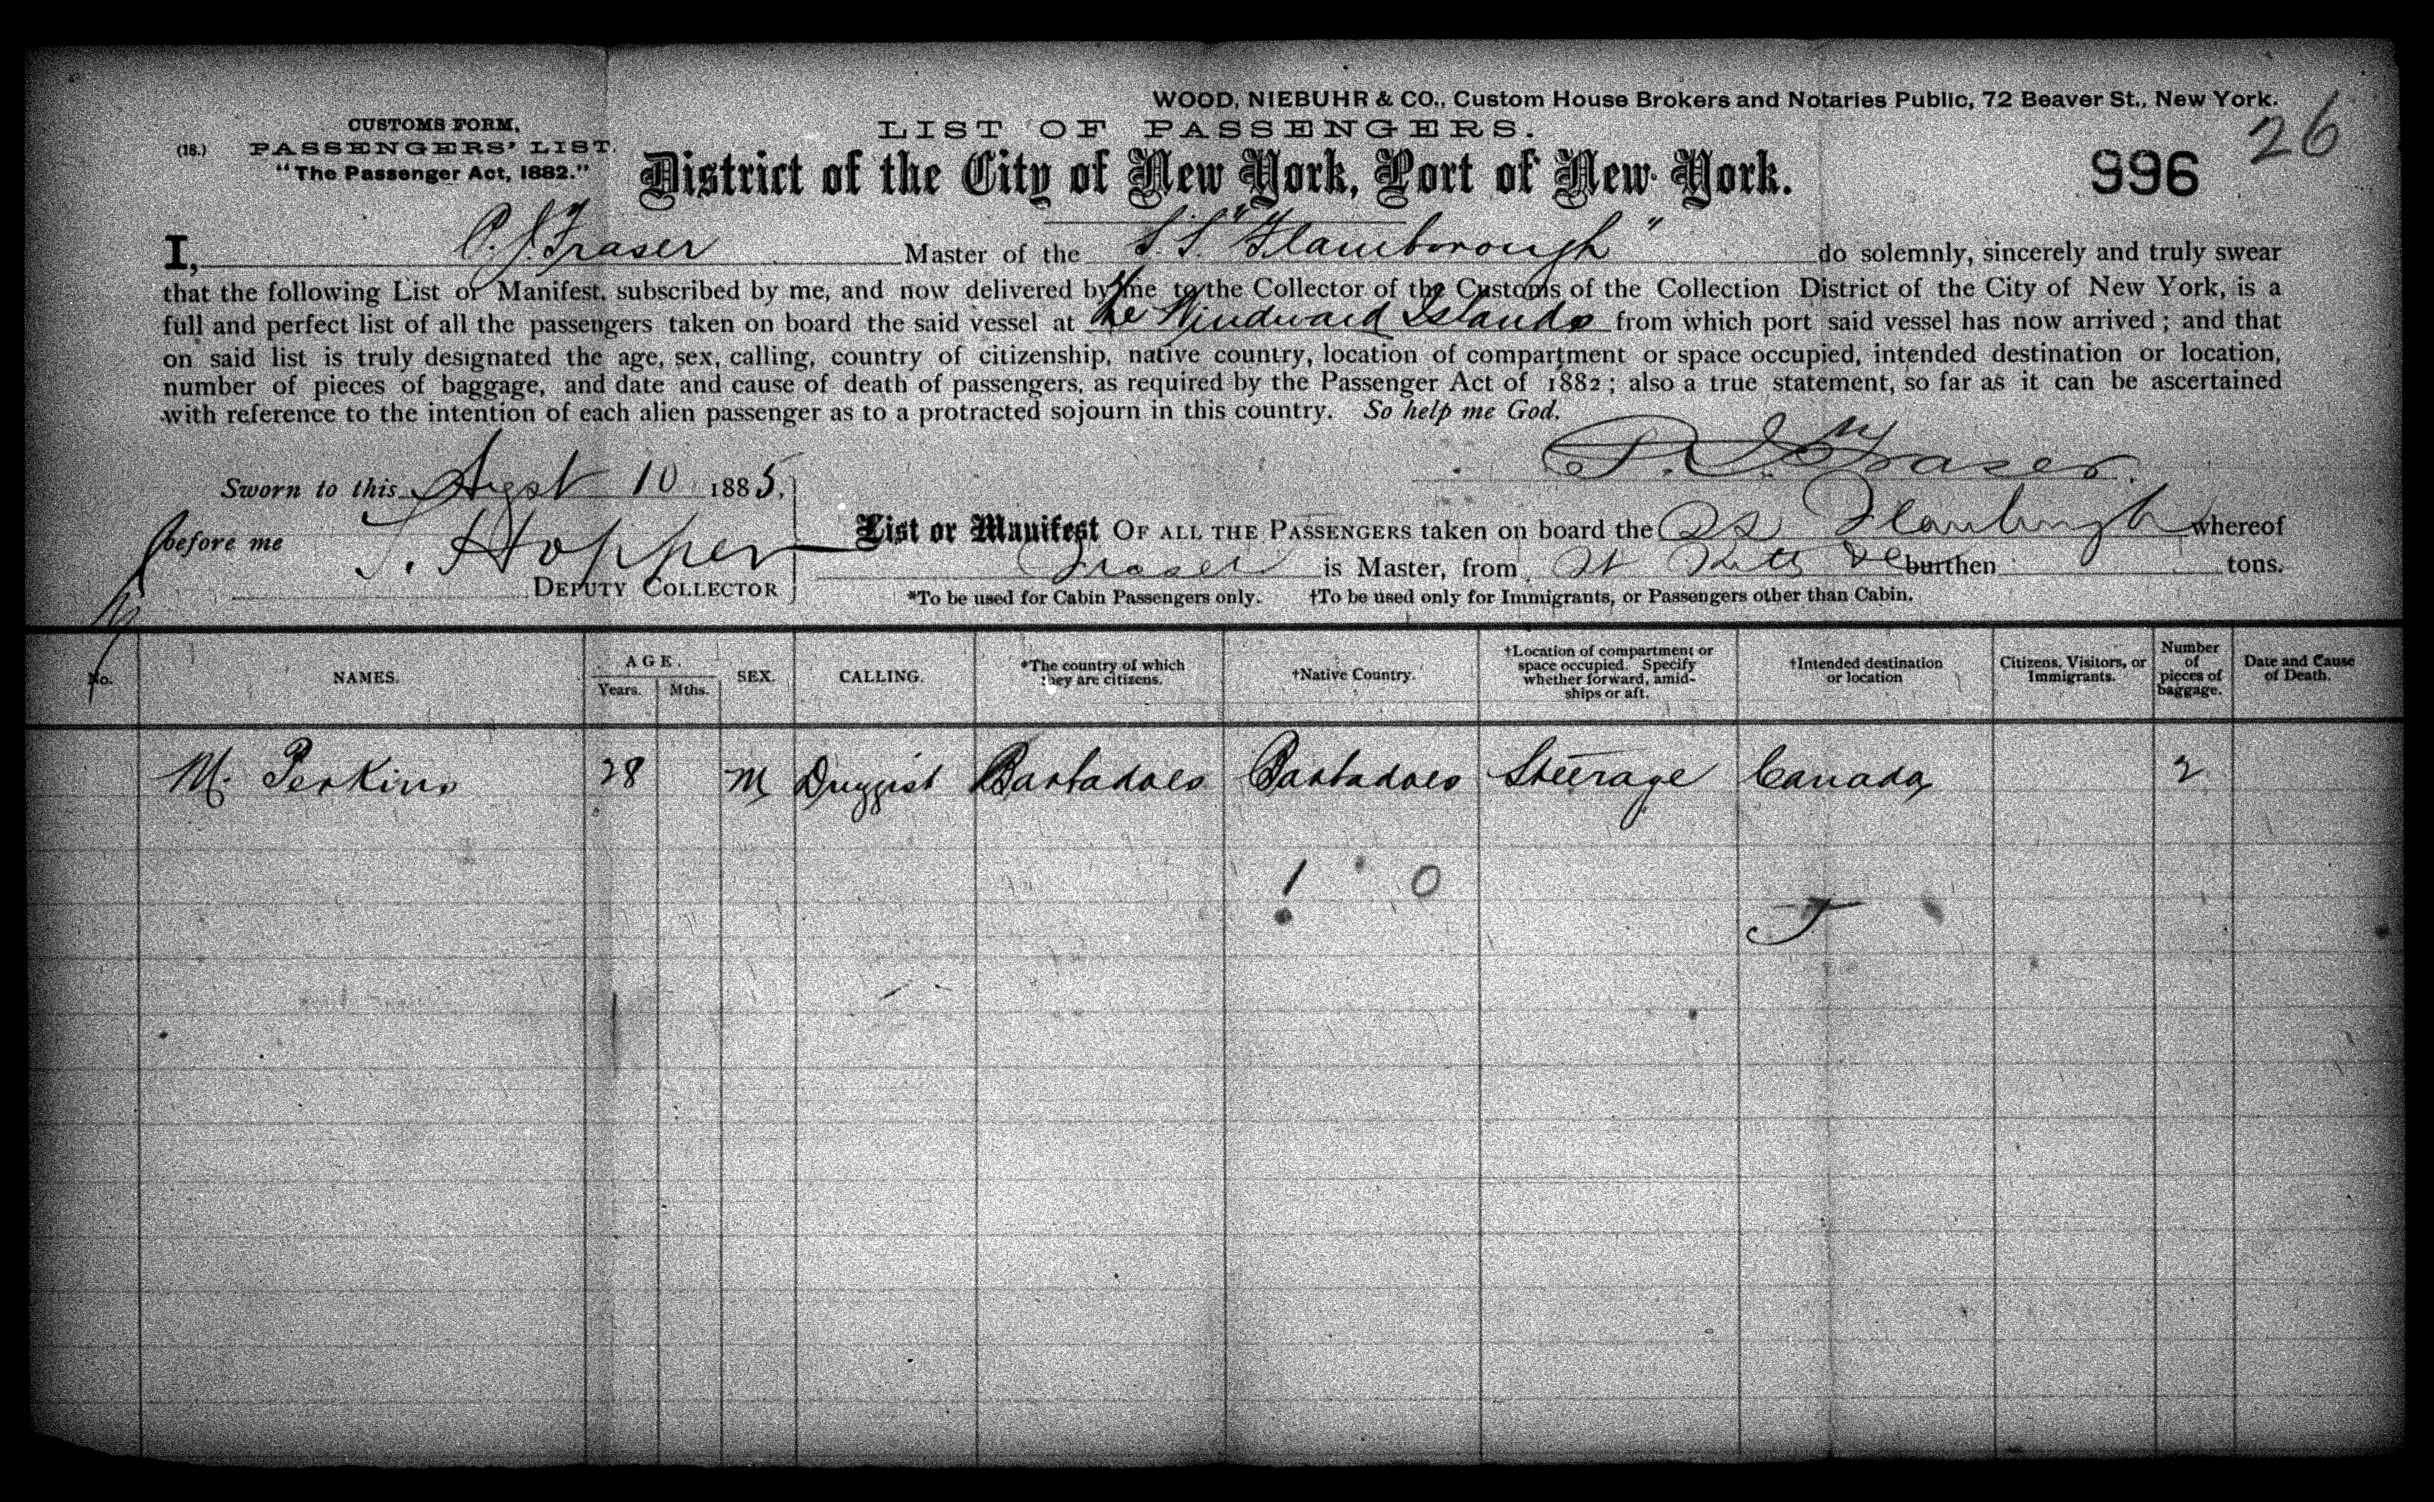 WOOD, NIEBUHR & CO., Custom House Brokers and Notaries Public, 72 Beaver St., New York.
26
CUSTOMS FORM,
LIST OF PASSENGERS.
(18.) PASSENGERS' LIST.
"The Passenger Act, 1882."
District of the City of New York, Port of New York.
996
I, P. J. Fraser Master of the S.S. "Flamborough" do solemnly, sincerely and truly swear
that the following List or Manifest, subscribed by me, and now delivered by me to the Collector of the Customs of the Collection District of the City of New York, is a
full and perfect list of all the passengers taken on board the said vessel at the Windward Islands from which port said vessel has now arrived; and that
on said list is truly designated the age, sex, calling, country of citizenship, native country, location of compartment or space occupied, intended destination or location,
number of pieces of baggage, and date and cause of death of passengers, as required by the Passenger Act of 1882; also a true statement, so far as it can be ascertained
with reference to the intention of each alien passenger as to a protracted sojourn in this country. So help me God.
P. J. Fraser.
Sworn to this Sept 10 1885,
before me Hopper
DEPUTY COLLECTOR
List or Manifest OF ALL THE PASSENGERS taken on board the SS Flamburgh whereof
Fraser is Master, from St Kitts &c burthen tons.
*To be used for Cabin Passengers only. †To be used only for Immigrants, or Passengers other than Cabin.
No. NAMES. AGE. Years. Mths. SEX. CALLING. *The country of which they are citizens. †Native Country. †Location of compartment or space occupied. Specify whether forward, amidships or aft. †Intended destination or location Citizens, Visitors, or Immigrants. Number of pieces of baggage. Date and Cause of Death.
M. Perkins 28 M Duggist Barbadoes Barbadoes Steerage Canada 2
1 0